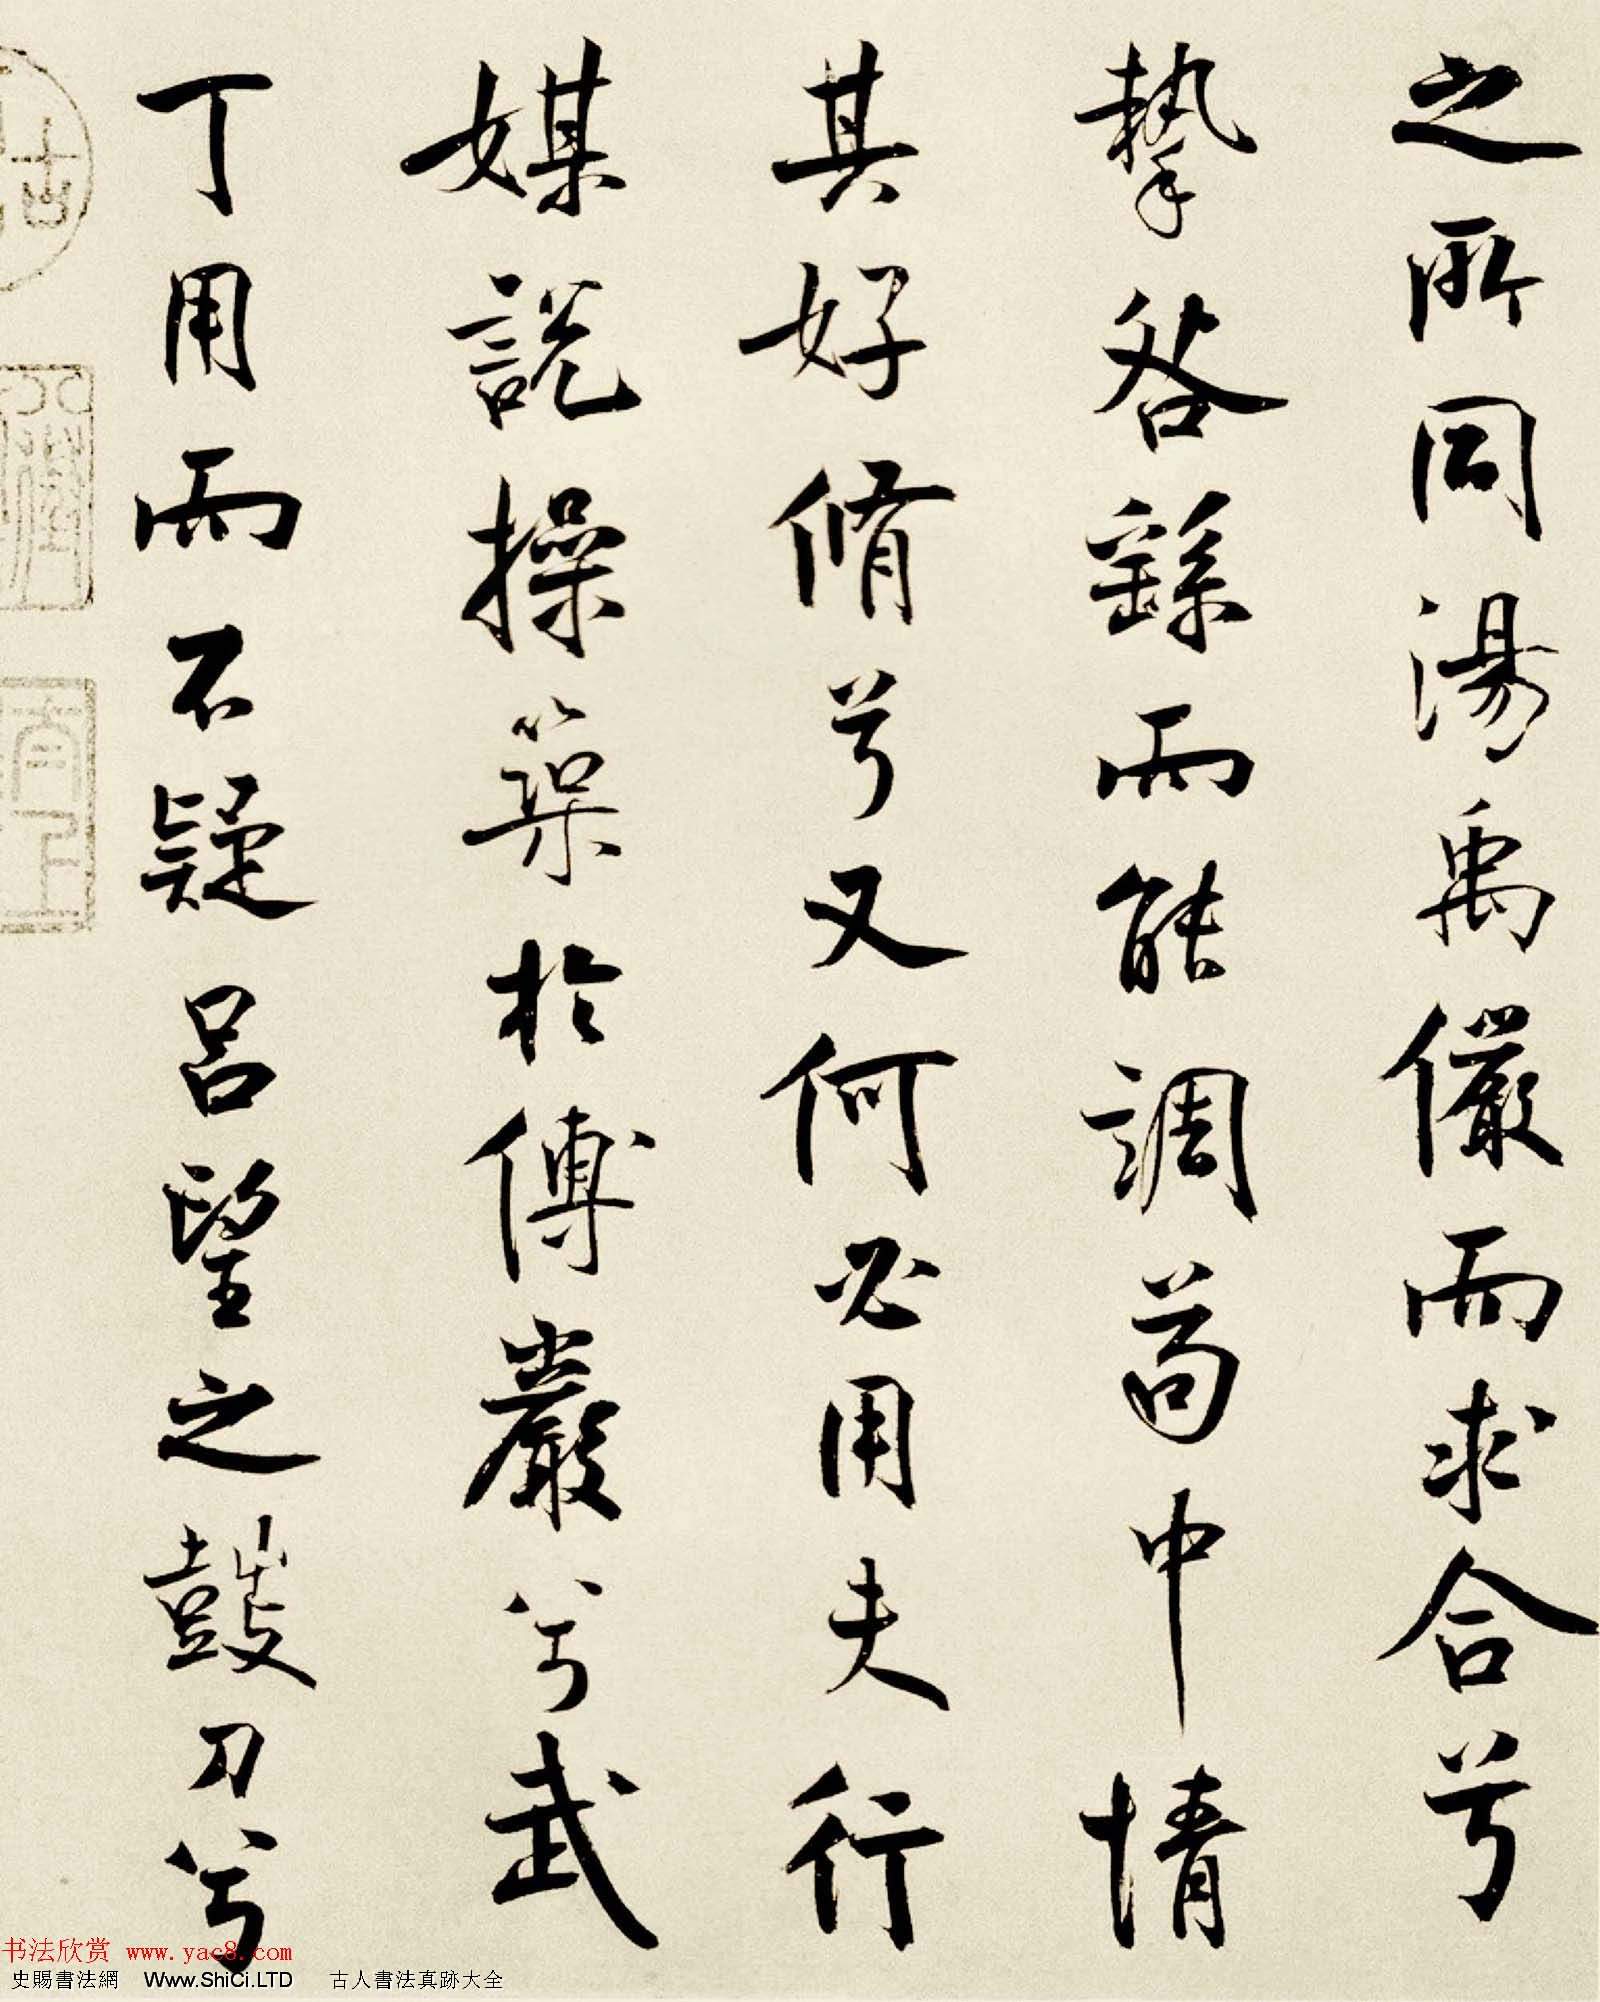 之所同湯禹儼而求合兮
摯咎繇而能調苟中情
其好脩兮又何必用夫行
媒說操築於傅巖兮武
丁用而不疑呂望之鼓刀兮
书法欣赏 www.yac8.com
史賜書法網 Www.ShiCi.LTD 古人書法真跡大全